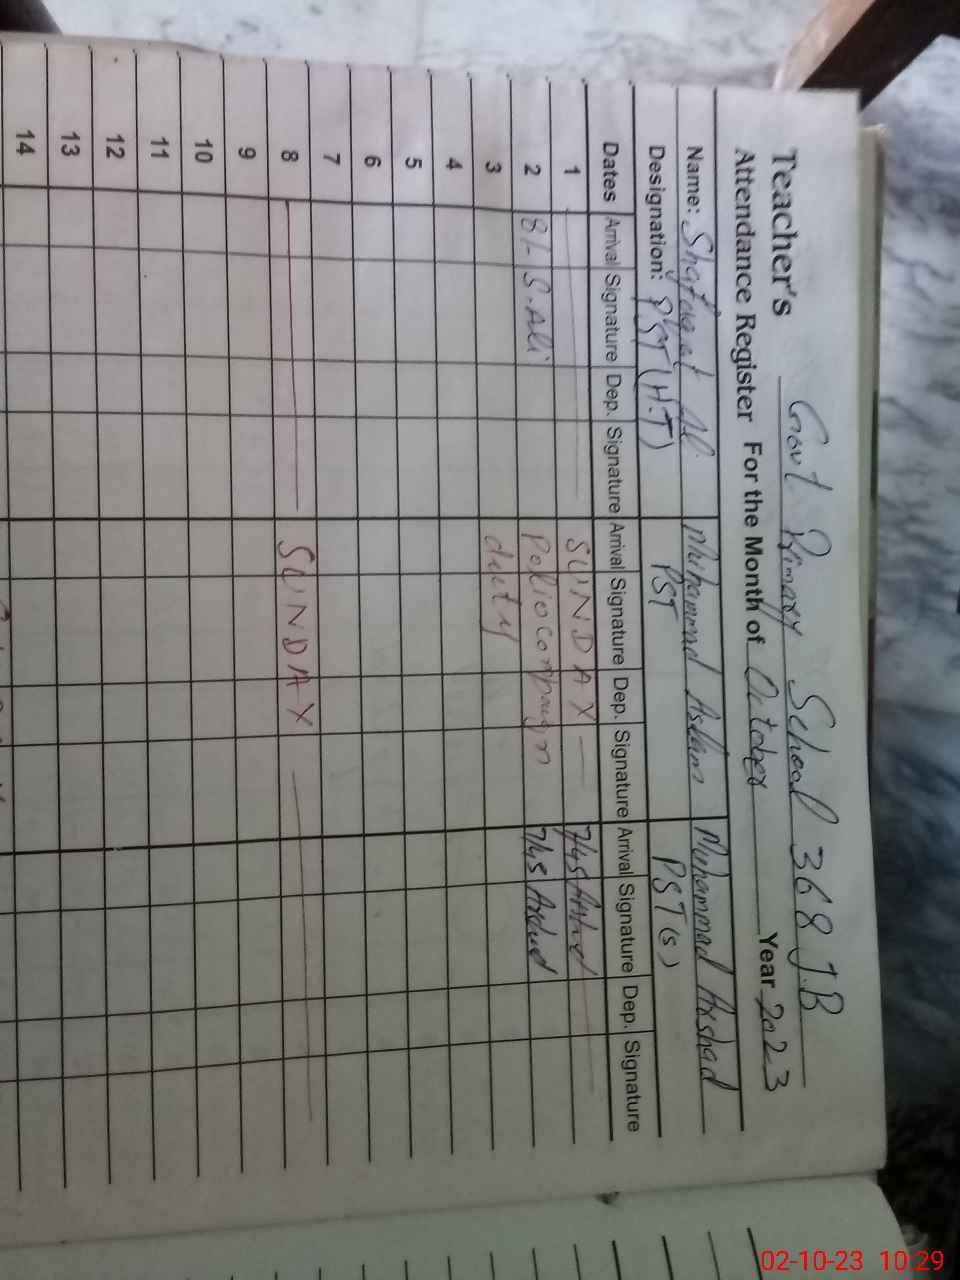 Teacher's
Govt. Primary School 368 J.B
Attendance Register For the Month of October Year 2023
Name: Shafaqat Ali Muhammad Aslam Muhammad Arshad
Designation: PST (H.T) PST PST (S)
Dates Arrival Signature Dep. Signature Arrival Signature Dep. Signature Arrival Signature Dep. Signature
1 SUNDAY 7/45 Arshad
2 8/- S.Ali Polio Compaign 7/45 Arshad
3 duty
4
5
6
7
8 SUNDAY
9
10
11
12
13
14
02-10-23 10:29